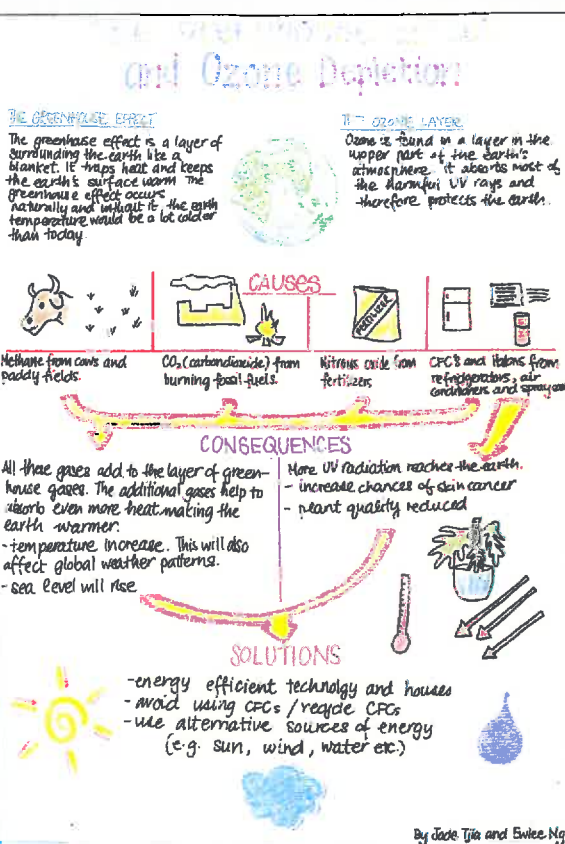 and Ozone Depletion
THE GREENHOUSE EFFECT
The greenhouse effect is a layer of
surrounding the earth like a
blanket. It traps heat and keeps
the earth's surface warm The
greenhouse effect occurs
naturally and without it, the earth
temperature would be a lot colder
than today.
OZONE LAYER
Ozone is found in a layer in the
upper part of the Earth's
atmosphere. it absorbs most of
the Harmful UV rays and
therefore protects the earth.
CAUSES
Fertilizer
Methane from cows and
paddy fields.
CO₂ (carbondioxide) from
burning fossil fuels.
Nitrous oxide from
fertilizers
CFC's and Halons from
refridgerators, air
conditioners and spray cans
CONSEQUENCES
All these gases add to the layer of green-
house gases. The additional gases help to
absorb even more heat making the
earth warmer.
- temperature increase. This will also
affect global weather patterns.
- sea level will rise
More UV radiation reaches the earth.
- increase chances of skin cancer
- plant quality reduced
SOLUTIONS
-energy efficient technolgy and houses
- avoid using CFCs / recycle CFCs
- use alternative sources of energy
(e.g. sun, wind, water etc.)
By Jade Tjia and Ewlee Ng